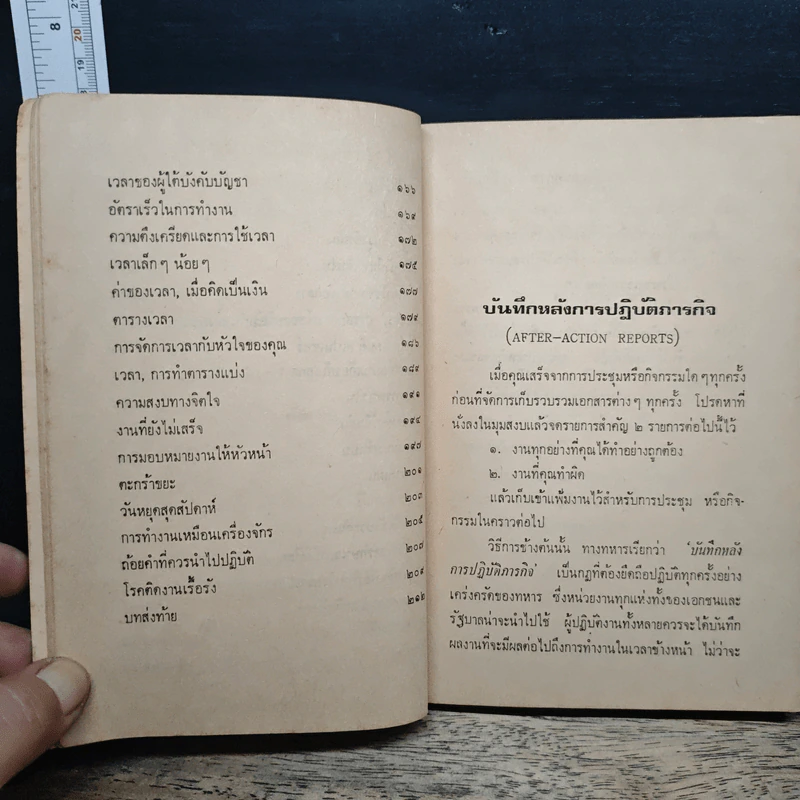 8
20
19
เวลาของผู้ใต้บังคับบัญชา ๑๖๖
อัตราเร็วในการทำงาน ๑๖๙
ความตึงเครียดและการใช้เวลา ๑๗๒
เวลาเล็กๆ น้อยๆ ๑๗๕
ค่าของเวลา, เมื่อคิดเป็นเงิน ๑๗๗
ตารางเวลา ๑๗๙
การจัดการเวลากับหัวใจของคุณ ๑๘๖
เวลา, การทำตารางแบ่ง ๑๘๙
ความสงบทางจิตใจ ๑๙๑
งานที่ยังไม่เสร็จ ๑๙๔
การมอบหมายงานให้หัวหน้า ๑๙๗
ตะกร้าขยะ ๒๐๑
วันหยุดสุดสัปดาห์ ๒๐๓
การทำงานเหมือนเครื่องจักร ๒๐๕
ถ้อยคำที่ควรนำไปปฏิบัติ ๒๐๗
โรคติดงานเรื้อรัง ๒๐๙
บทส่งท้าย ๒๑๒
บันทึกหลังการปฏิบัติภารกิจ
(AFTER-ACTION REPORTS)
เมื่อคุณเสร็จจากการประชุมหรือกิจกรรมใดๆทุกครั้ง
ก่อนที่จัดการเก็บรวบรวมเอกสารต่างๆ ทุกครั้ง โปรดหาที่
นั่งลงในมุมสงบแล้วจดรายการสำคัญ ๒ รายการต่อไปนี้ไว้
๑. งานทุกอย่างที่คุณได้ทำอย่างถูกต้อง
๒. งานที่คุณทำผิด
แล้วเก็บเข้าแฟ้มงานไว้สำหรับการประชุม หรือกิจ-
กรรมในคราวต่อไป
วิธีการข้างต้นนั้น ทางทหารเรียกว่า 'บันทึกหลัง
การปฏิบัติภารกิจ' เป็นกฎที่ต้องยึดถือปฏิบัติทุกครั้งอย่าง
เคร่งครัดของทหาร ซึ่งหน่วยงานทุกแห่งทั้งของเอกชนและ
รัฐบาลน่าจะนำไปใช้ ผู้ปฏิบัติงานทั้งหลายควรจะได้บันทึก
ผลงานที่จะมีผลต่อไปถึงการทำงานในเวลาข้างหน้า ไม่ว่าจะ